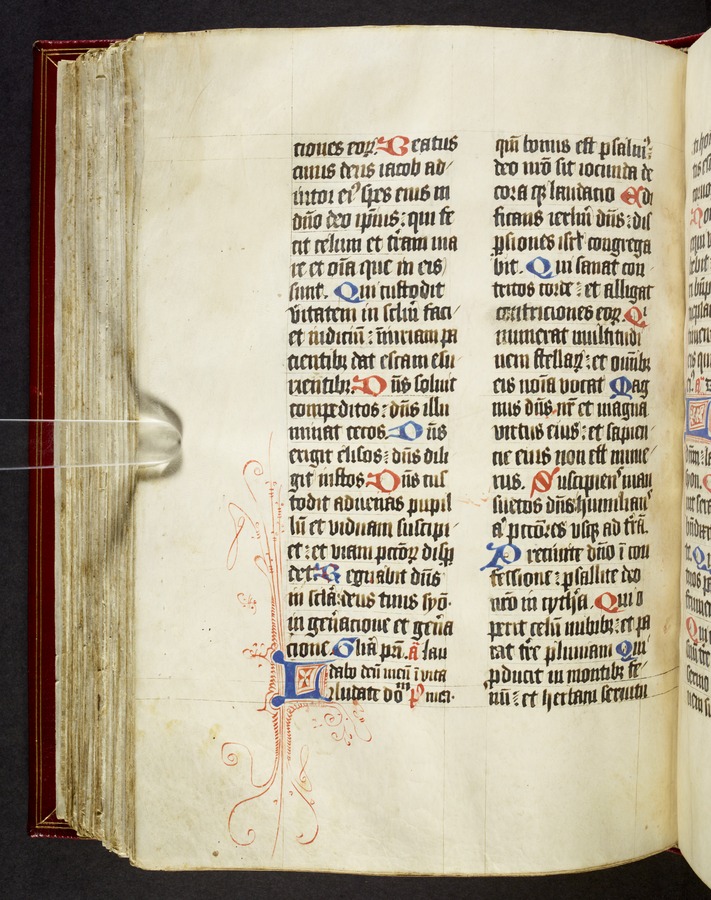 ciones eoꝝ. Beatus
cuius deus iacob ad
iutor eiꝰ spes eius in
dn̄o deo ip̄ius: qui fe
cit celum et t̄ram ma
re et oīa que in eis
sunt. Qui custodit
veritatem in sc̄lm̄ faci
et iudiciū: iniuriam pa
cientibꝫ dat escam esu
rientibꝫ. Dn̄s soluit
compeditos: dn̄s illu
minat cecos. Dn̄s
erigit elisos: dn̄s dili
git iustos. Dn̄s cus
todit aduenas pupil
lū et viduam suscipi
et: et vias pct̄oꝝ disꝑ
det. Regnabit dn̄s
in scl̄a: deus tuus syō.
in gen̄acione et gen̄a
cione. Gl̄ia pr̄i. a̅ Lau
dabo deū meū ī vita
Laudate do
qm̄ bonus est psalmꝰ:
deo nr̄o sit iocunda de
cora qꝫ laudacio Edi
ficans ierl̄m dn̄s: dis
ꝑsiones isrl̄ congrega
bit. Qui sanat con
tritos corde: et alligat
contriciones eoꝝ. Qi
numerat multitudi
nem stellaꝝ: et om̄ibꝫ
eis noīa vocat Mag
nus dn̄s nr̄ et magna
virtus eius: et sapien
cie eius non est nume
rus. Suscipiens man
suetos dn̄s: humilians
a̅ pct̄ores vsqꝫ ad t̄rā.
Precinite dn̄o ī con
fessione: psallite deo
nr̄o in cythr̄a. Qui o
perit celū nubibꝫ: et pa
rat tr̄e pluuiam Qui
ꝓducit in montibꝫ fe
nū: et herbam seruitu